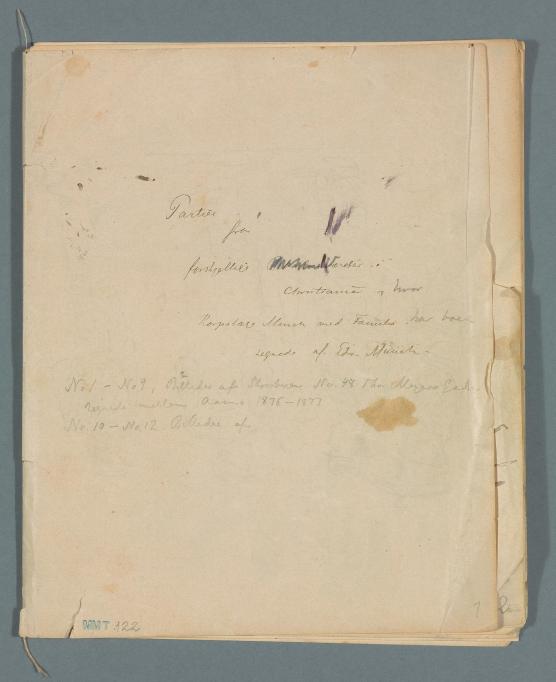 Partier
fra
forskjellige
Christiania, hvor
Korpslæge Munch med Familie har boet
tegnede af Edv. Munch.
No 1 – No 9, Billeder af Stuerne No. 48 Thv. Meyers Gade.
tegnede mellem Aarene 1876–1877
No. 10 – No. 12 Billeder af
MMT 122
1
2